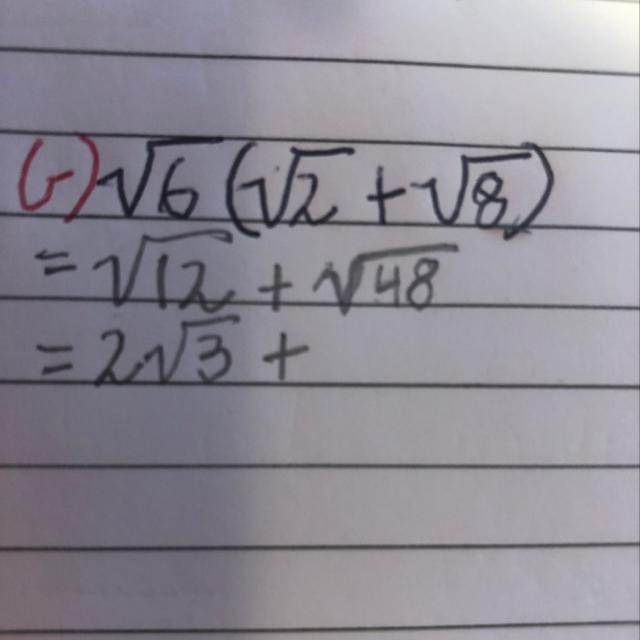 r) √6 (√2 + √8)
= √12 + √48
= 2√3 +